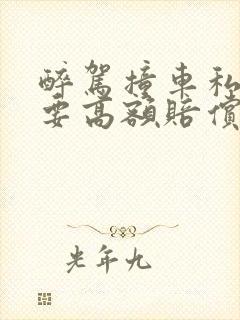 醉駕撞車私
要高額賠償
光年九